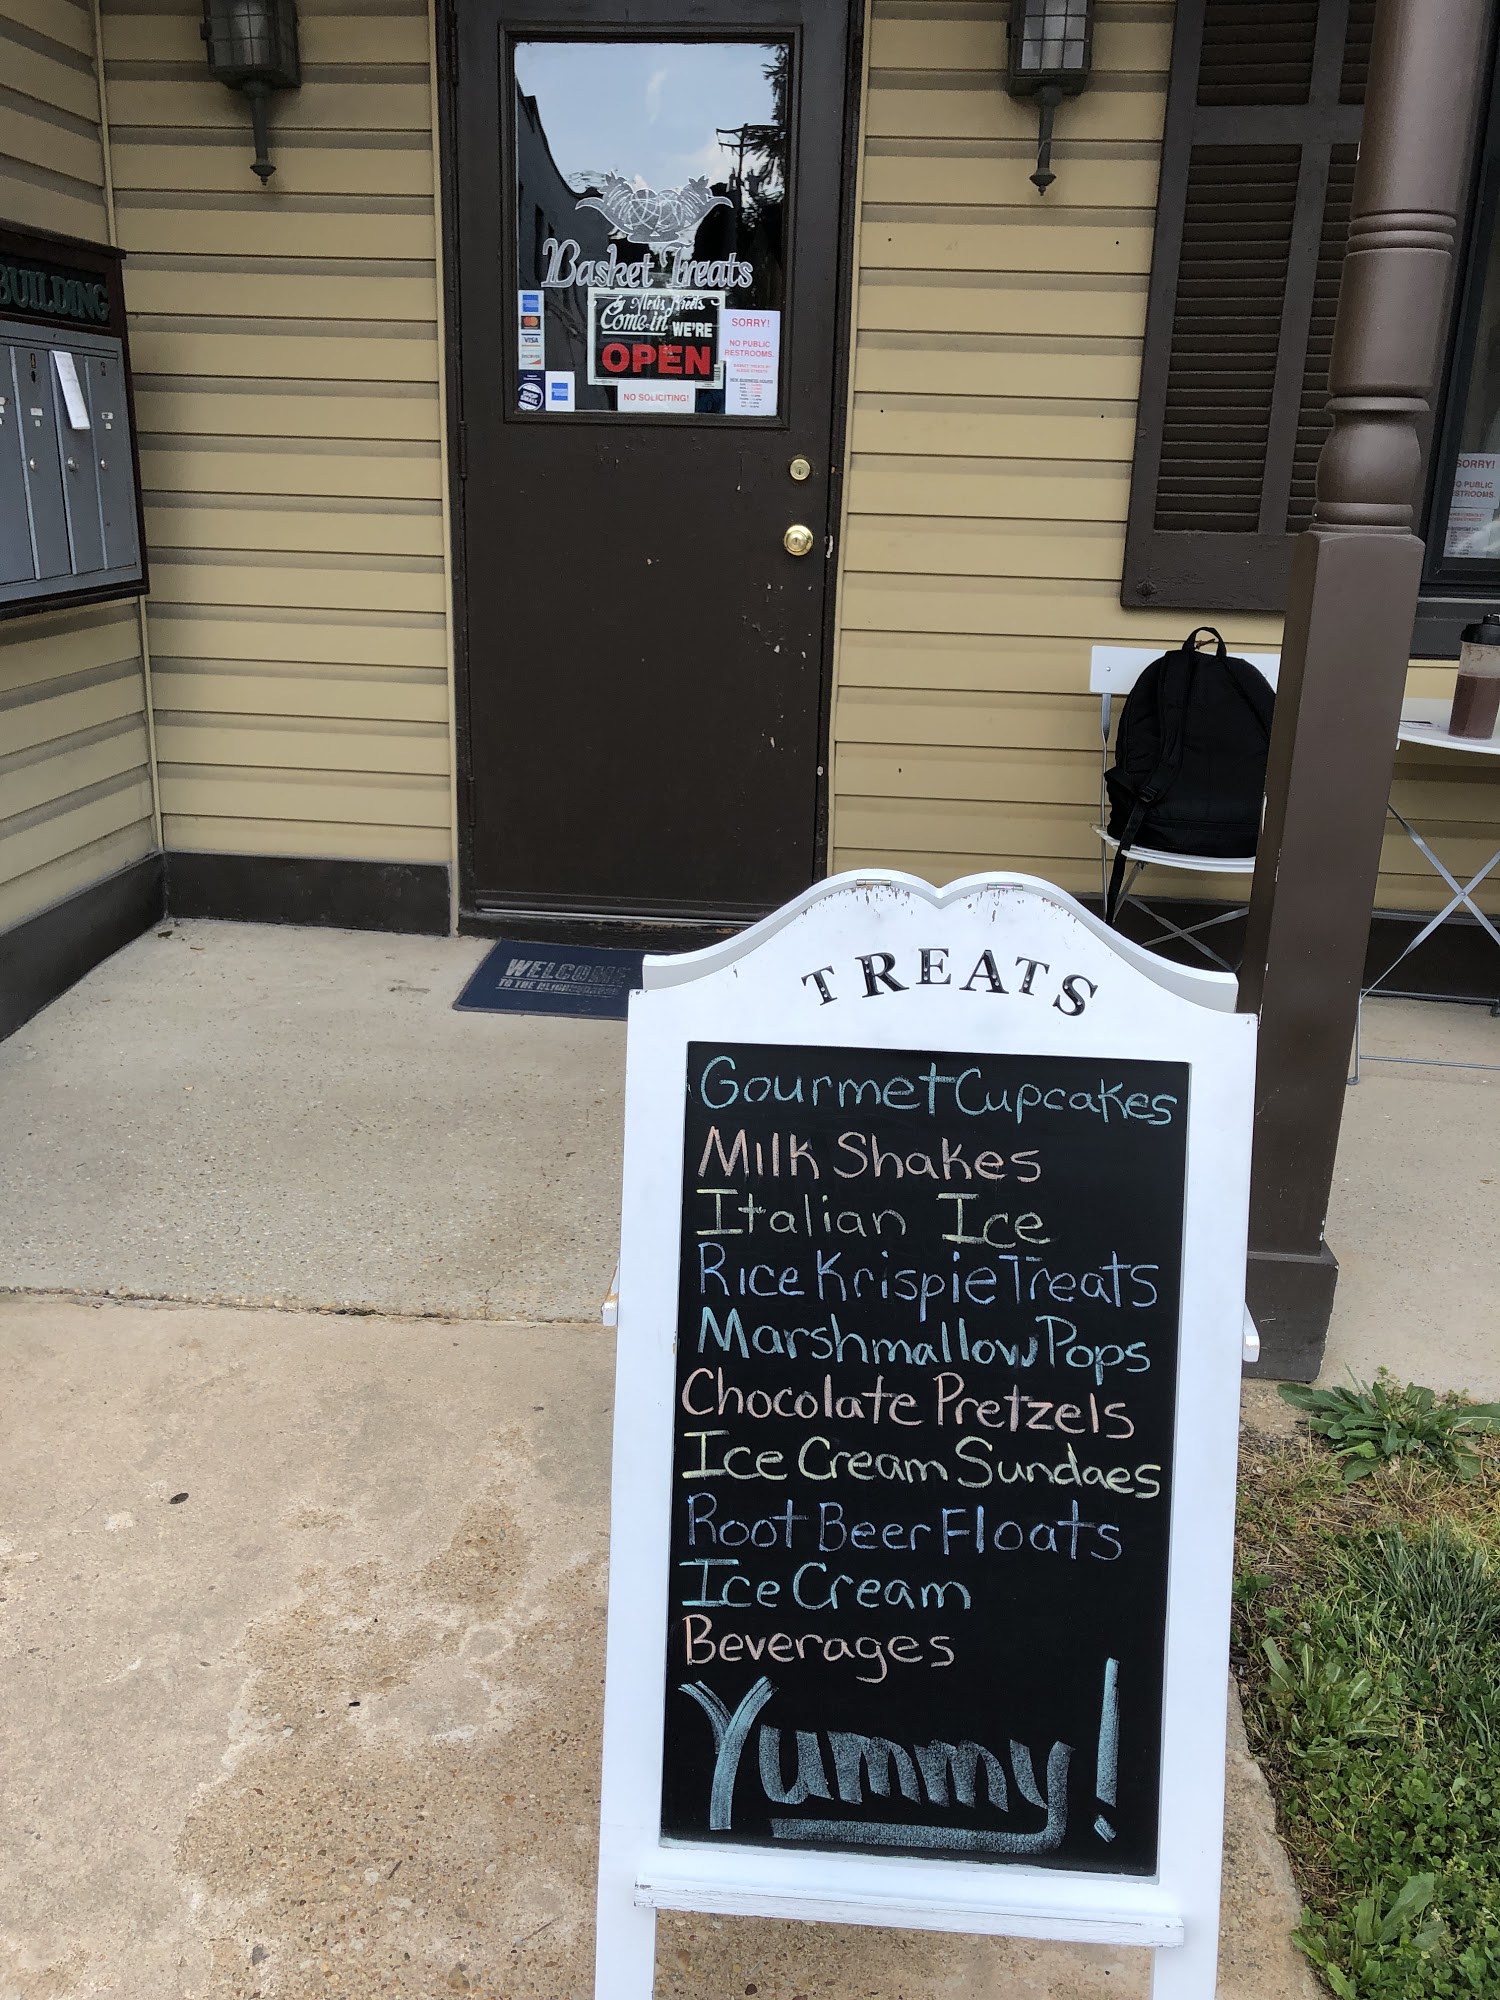 BUILDING
Basket Treats
Come in WE'RE
OPEN
VISA
SHOP
SMALL
NO SOLICITING!
SORRY!
NO PUBLIC
RESTROOMS.
SORRY!
O PUBLIC
STROOMS.
WELCOME
TO THE NEIGHBORHOOD
TREATS
Gourmet Cupcakes
Milk Shakes
Italian Ice
Rice Krispie Treats
Marshmallow Pops
Chocolate Pretzels
Ice Cream Sundaes
Root Beer Floats
Ice Cream
Beverages
Yummy!